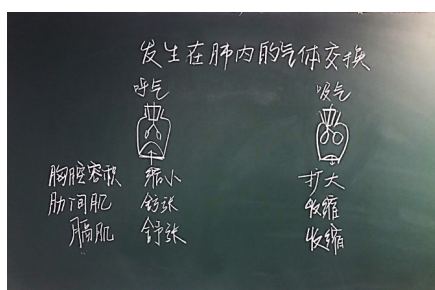 发生在肺内的气体交换
呼气 吸气
胸腔容积 缩小 扩大
肋间肌 舒张 收缩
膈肌 舒张 收缩